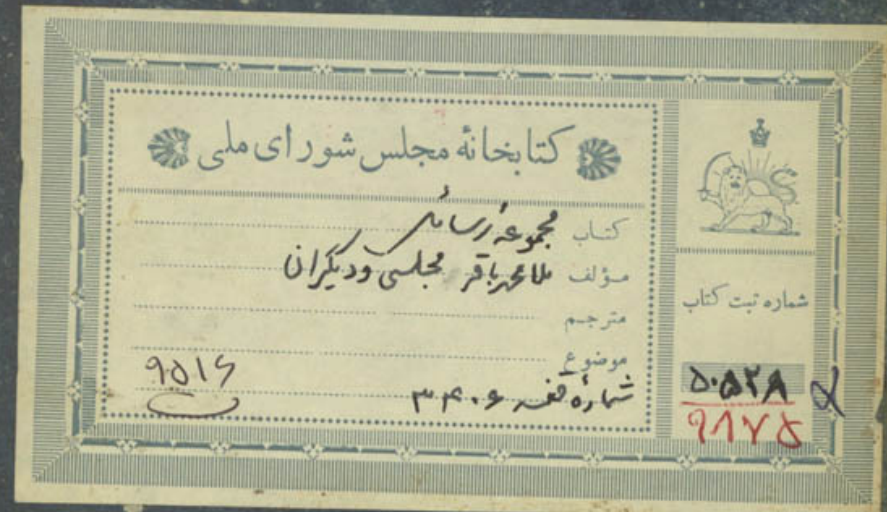 کتابخانهٔ مجلس شورای ملی
کتاب مجموعه رسائل
مؤلف ملا محمد باقر مجلسی و دیگران
مترجم
موضوع
شمارهٔ قفسه ۳۴۰۶
۹۵۱۶
شماره ثبت کتاب
۵۰۵۲۸
۹۱۷۵